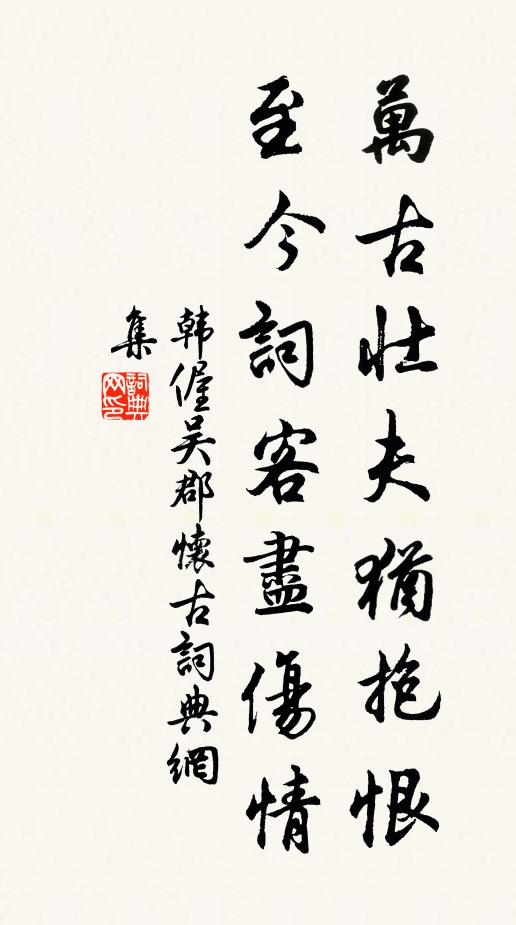 萬古壯夫猶抱恨
至今詞客盡傷情
韩偓吴郡懷古詞典網
集
詞典网印